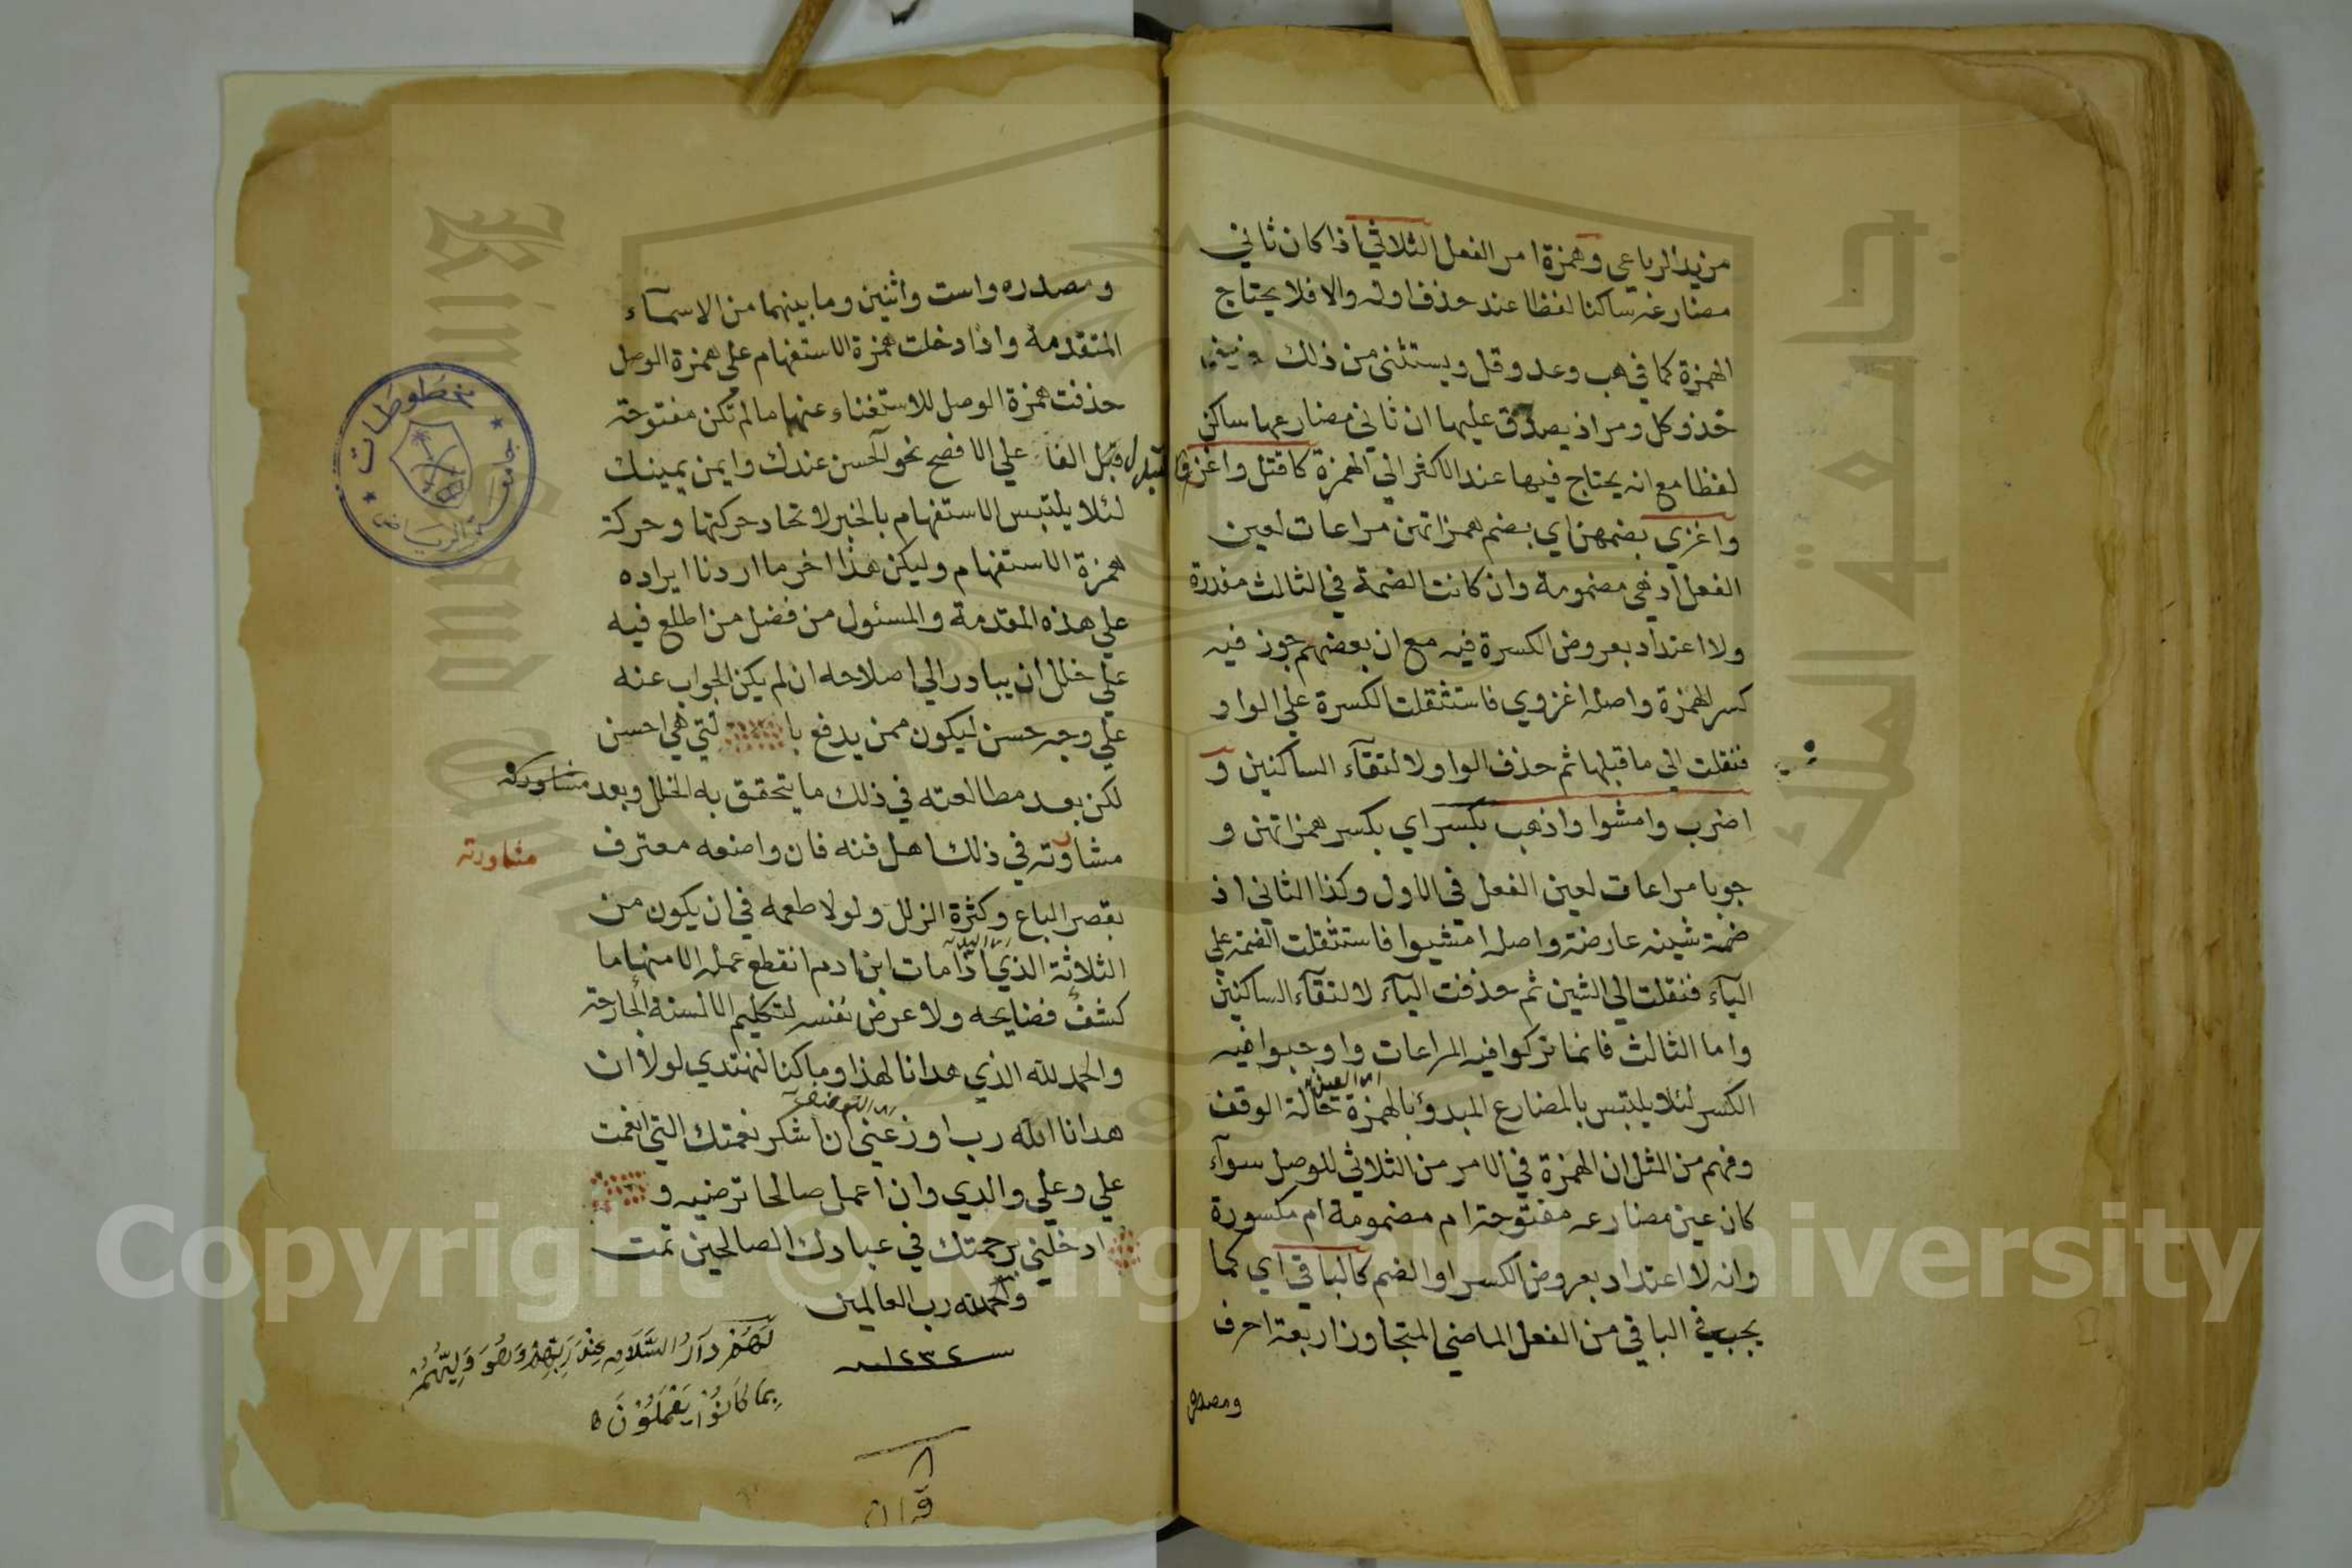 مزيد الرباعي وهمزة امر الفعل الثلاثي اذا كان ثاني
مضارعه ساكنا لفظا عند حذف اوله والا فلا يحتاج
الهمزة كما في هب وعد وقل ويستثنى من ذلك
خذ وكل ومر اذ يصدق عليها ان ثاني مضارعها ساكن
لفظا مع انه يحتاج فيها عند الاكثر الي الهمزة كاقتل واغز
واغزي بضمهن اي بضم همزاتهن مراعات لعين
الفعل اذ هي مضمومة وان كانت الضمة في الثالث مقدرة
ولا اعتداد بعروض الكسرة فيه مع ان بعضهم جوز فيه
كسر الهمزة واصله اغزوي فاستثقلت الكسرة علي الواو
فنقلت الي ما قبلها ثم حذف الواو لالتقآء الساكنين و
اضرب وامشوا واذهب بكسر اي بكسر همزاتهن و
جوبا مراعات لعين الفعل في الاول وكذا الثاني اذ
ضمة شينه عارضة واصله امشيوا فاستثقلت الضمة علي
اليآء فنقلت الي الشين ثم حذفت اليآء لالتقآء الساكنين
واما الثالث فانما تركوا فيه المراعات واوجبوا فيه
الكسر لئلا يلتبس بالمضارع المبدؤ بالهمزة حالة الوقف
وفهم من المثل ان الهمزة في الامر من الثلاثي للوصل سوآء
كان عين مضارعه مفتوحة ام مضمومة ام مكسورة
وانه لا اعتداد بعروض الكسر او الضم كالباقي اي كما
يجب في الباقي من الفعل الماضي المتجاوز اربعة احرف
ومصدره
ومصدره واست واثنين وما بينهما من الاسمآء
المتقدمة واذا دخلت همزة الاستفهام علي همزة الوصل
حذفت همزة الوصل للاستغناء عنها ما لم تكن مفتوحة
الفا علي الافصح نحو آلحسن عندك وايمن يمينك
لئلا يلتبس الاستفهام بالخبر لاتحاد حركتها وحركة
همزة الاستفهام وليكن هذا اخر ما اردنا ايراده
علي هذه المقدمة والمسئول من فضل من اطلع فيه
علي خلل ان يبادر الي اصلاحه ان لم يكن الجواب عنه
علي وجه حسن ليكون ممن يدفع با لتي هي احسن
لكن بعد مطالعته في ذلك ما يتحقق به الخلل وبعد مشاورته
مشاورته في ذلك اهل فنه فان واضعه معترف
مشاورته
بقصر الباع وكثرة الزلل ولولا طمعه في ان يكون من
الثلاثة الذي اذا مات ابن ادم انقطع عمله الا منها ما
كشف فضايحه ولا عرض نفسه لتكليم الالسنة الجارحة
والحمد لله الذي هدانا لهذا وما كنا لنهتدي لولا ان
هدانا الله رب اوزعني ان اشكر نعمتك التي انعمت
علي وعلي والدي وان اعمل صالحا ترضيه و
ادخلني برحمتك في عبادك الصالحين تمت
والحمد لله رب العالمين
سنة ١٢٣٢
لهم دار السلام عند ربهم وهو وليهم
بما كانوا يعملون
مخطوطات
جامعة الرياض
جامعة الملك
Copyright © King Saud University